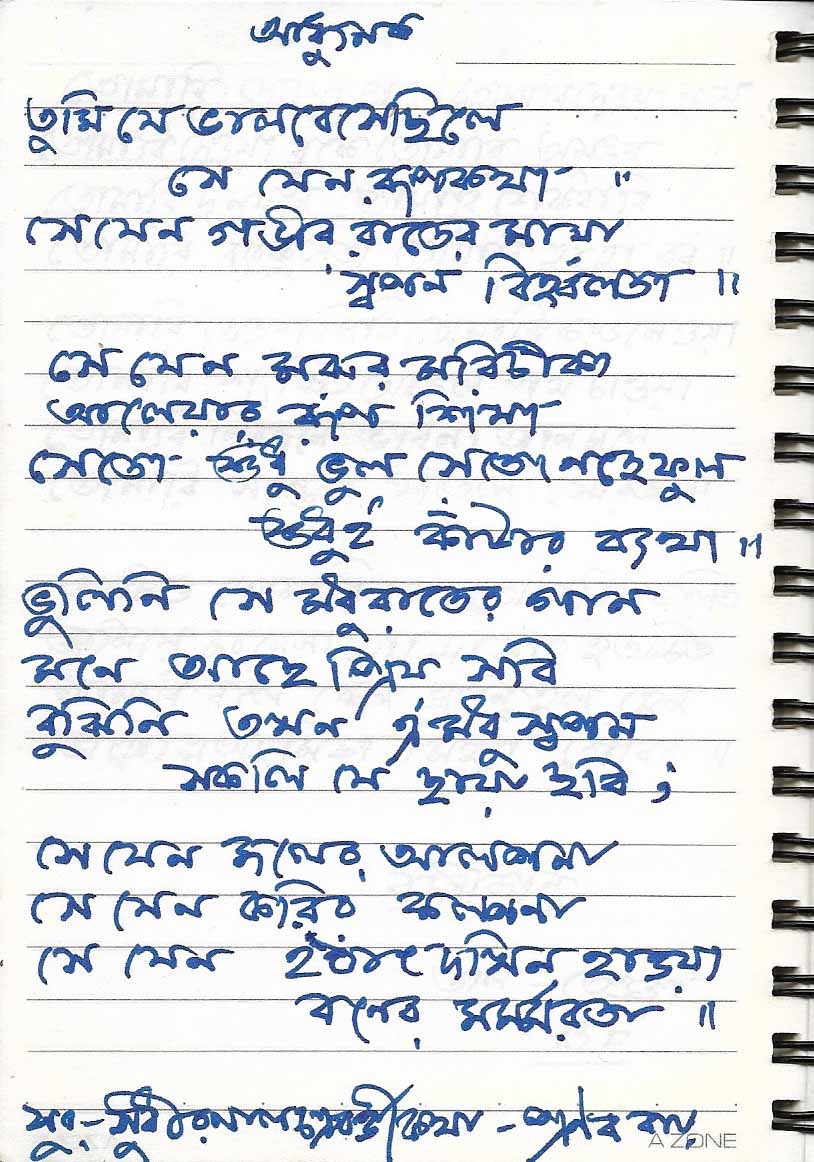 আধুনিক
তুমি যে ভালবেসেছিলে
সে যেন রূপকথা ॥
সে যেন গভীর রাতের মায়া
স্বপন বিহ্বলতা ॥
সে যেন মরুর মরিচীকা
আলেয়ার রূপ শিখা
সেতো শুধু ভুল সেতো নহে ফুল
শুধুই কাঁটার ব্যথা ॥
ভুলিনি সে মধুরাতের গান
মনে আছে প্রিয় সবি
বুঝিনি তখন এ মধু স্বপন
সকলি যে ছায়া ছবি ;
সে যেন জলের আলপনা
সে যেন কবির কল্পনা
সে যেন হঠাৎ দখিন হাওয়া
বনের মর্মরতা ॥
সুর - সুধীরলাল চক্রবর্তী কথা - প্রণব রায়
A ZONE